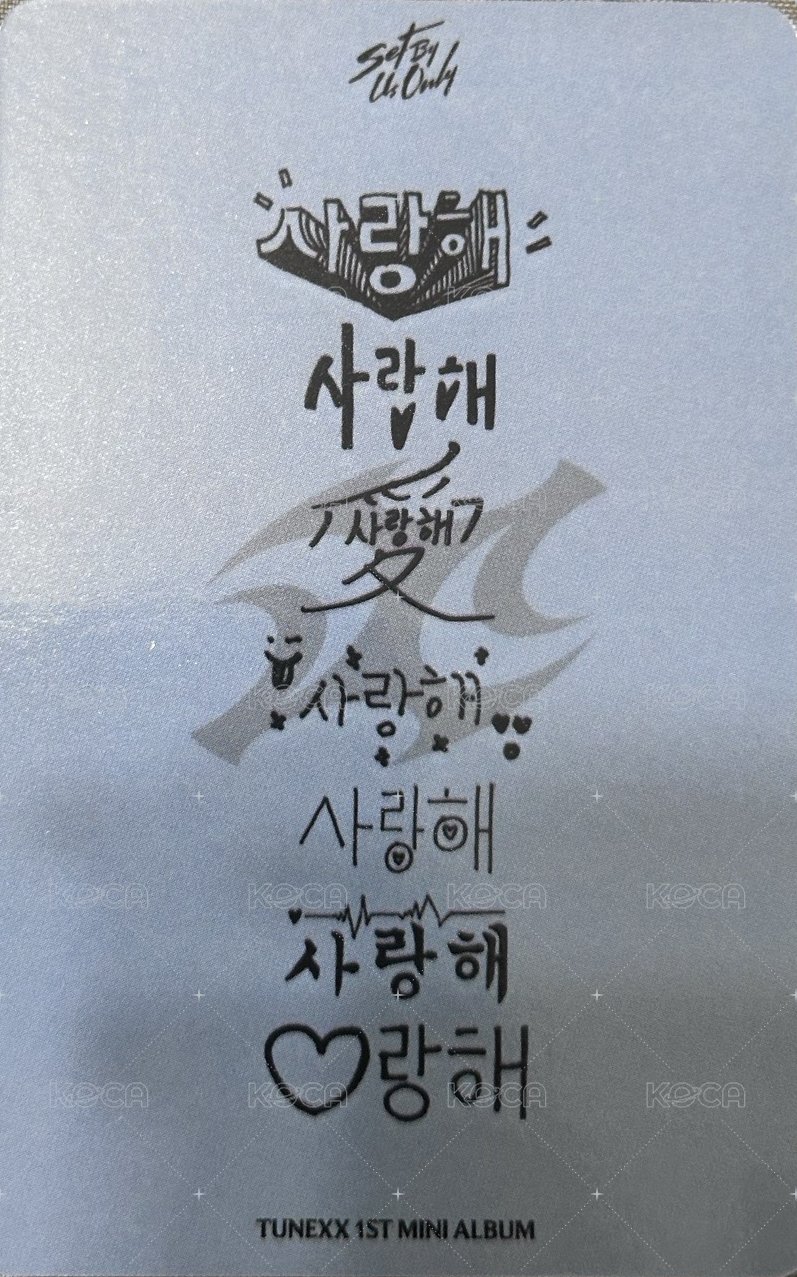 Set By
Us Only
사랑해
사랑해
愛
사랑해
사랑해
사랑해
사랑해
♡랑해
KOCA KOCA KOCA KOCA
KOCA KOCA KOCA KOCA
KOCA KOCA KOCA KOCA
TUNEXX 1ST MINI ALBUM